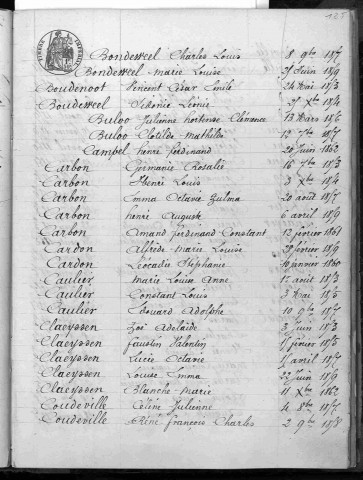 125
Bondeweel Charles Louis 8 9bre 1857
Bondeweel Marie Louise 25 Juin 1859
Boudenoot Vincent César Emile 24 Mai 1853
Boudeweel Sidonie Léonie 25 Xbre 1854
Buloo Julienne Hortense Clémence 13 Mars 1856
Buloo Clotilde Mathilde 12 7bre 1857
Campel Henri Ferdinand 20 Juin 1862
Carbon Germanie Rosalie 16 7bre 1853
Carbon Henri Louis 3 Xbre 1854
Carbon Emma Octavie Zulma 20 août 1857
Carbon Henri Auguste 6 avril 1859
Carbon Amand Ferdinand Constant 12 février 1861
Cardon Alfrède Marie Louise 28 février 1859
Cardon Léocadie Stéphanie 10 janvier 1860
Caulier Marie Louise Anne 15 août 1853
Caulier Constant Louis 3 Mai 1855
Caulier Edouard Adolphe 10 9bre 1857
Claeyssen Zoé Adélaïde 3 Juin 1853
Claeyssen Faustin Valentin 1 février 1855
Claeyssen Lucie Octavie 1 avril 1857
Claeyssen Louise Emma 22 Juin 1859
Claeyssen Blanche Marie 11 Xbre 1862
Coudeville Céline Julienne 4 8bre 1857
Coudeville René François Charles 2 9bre 1858